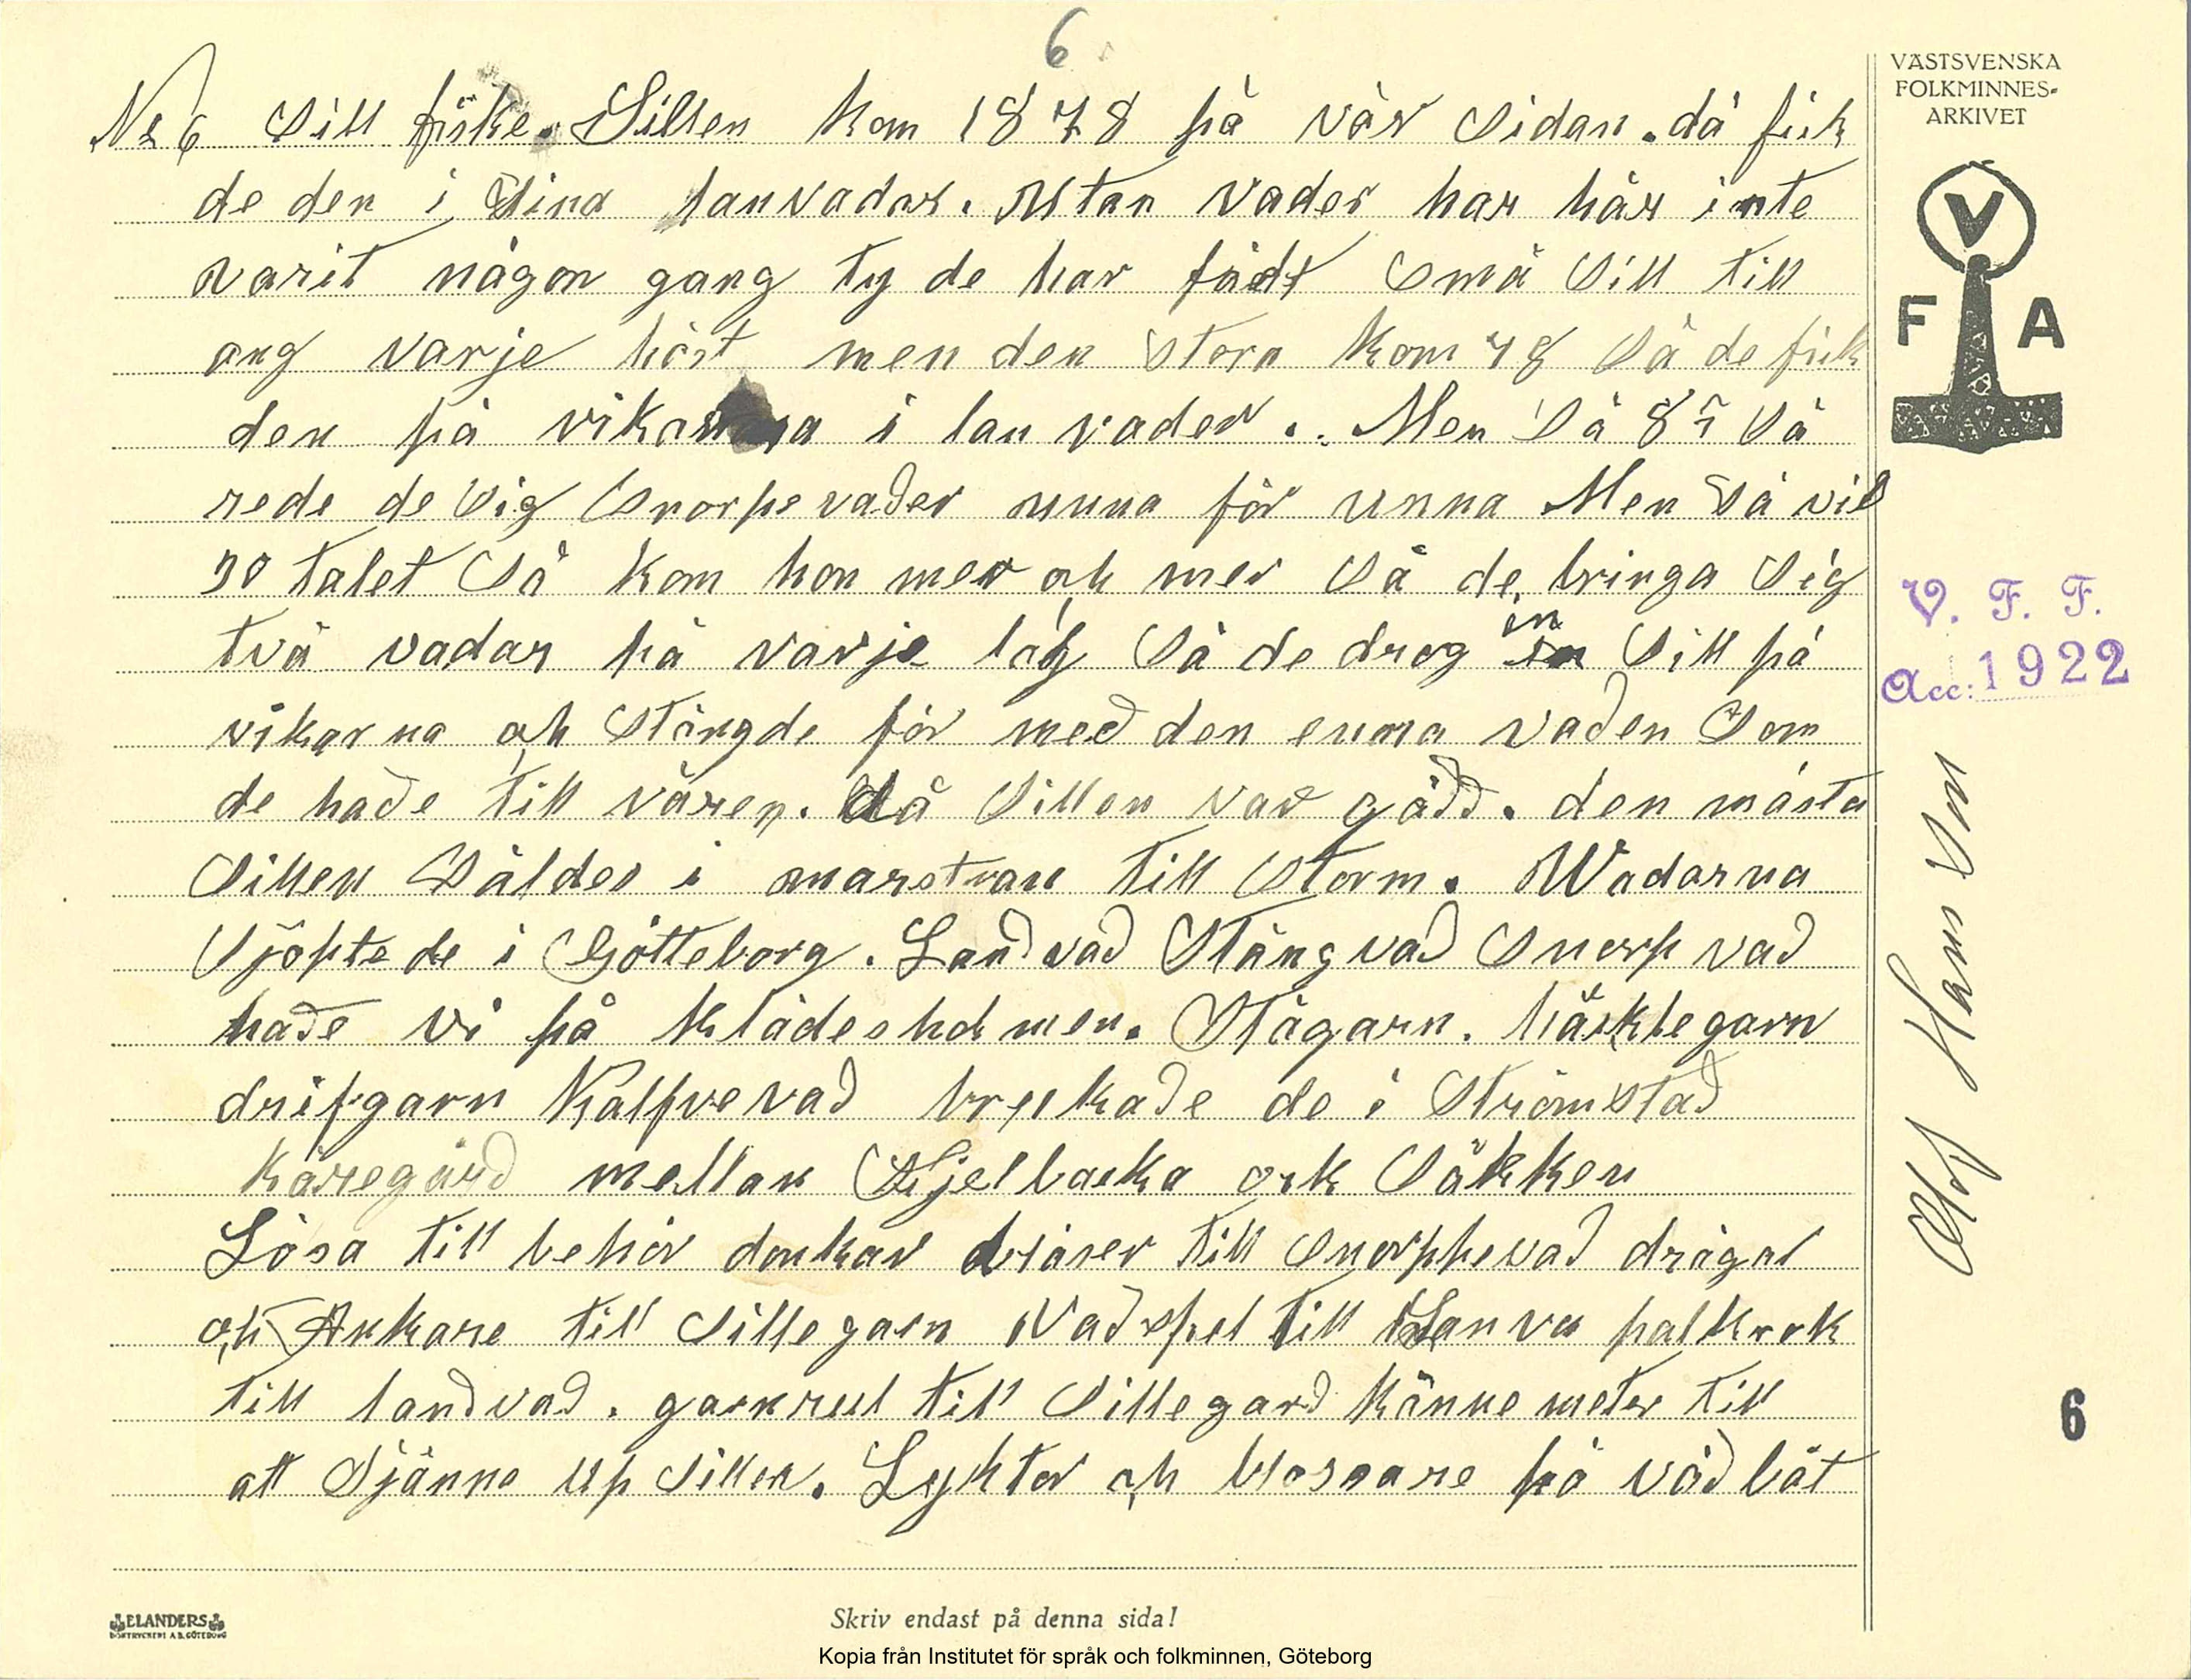 6
VÄSTSVENSKA
FOLKMINNES-
ARKIVET
V
F A
No 6 Sill fiske. Sillen kom 1878 på vår Sidan. då fick
de den i Sina lanvadar. Utan vader har här inte
varit någon gang ty de har fådt Små Sill till
ang varje höst men den Stora kom 78 Så de fick
den på vikarna i lan vader. Men Så 85 Så
rede de Sig Snorpe vader unna för unna Men Så vid
90 talet Så kom hon mer och mer Så de bringa Sig
två vadar på varje lag Så de drog in Sill på
vikarna och Stängde för med den enna vaden Som
de hade till våren. då Sillen var gådd. den mästa
Sillen Såldes i marstran till Storm. Wadarna
Sjöpte de i Götteborg. Landvad Stängvad Snorp vad
hade vi på Klädesholmen. Stågarn. häcklegarn
drifgarn Kalfvevad bruckade de i Strömstad
Käregård mellan Fjelbacka ock Säkken
Lösa till behör donkar blåser till Snorppevad drägar
och Ankare till Sillegarn Vadspel till Lanva palkrok
till landvad. garnrul till Sillegard Känne meter till
att Sjänne up Sillen. Lyktor och blosare på vådbåt
V. F. F.
Acc: 1922
Olof Hans Son
6
ELANDERS
BOKTRYCKERI A.B. GÖTEBORG
Skriv endast på denna sida!
Kopia från Institutet för språk och folkminnen, Göteborg